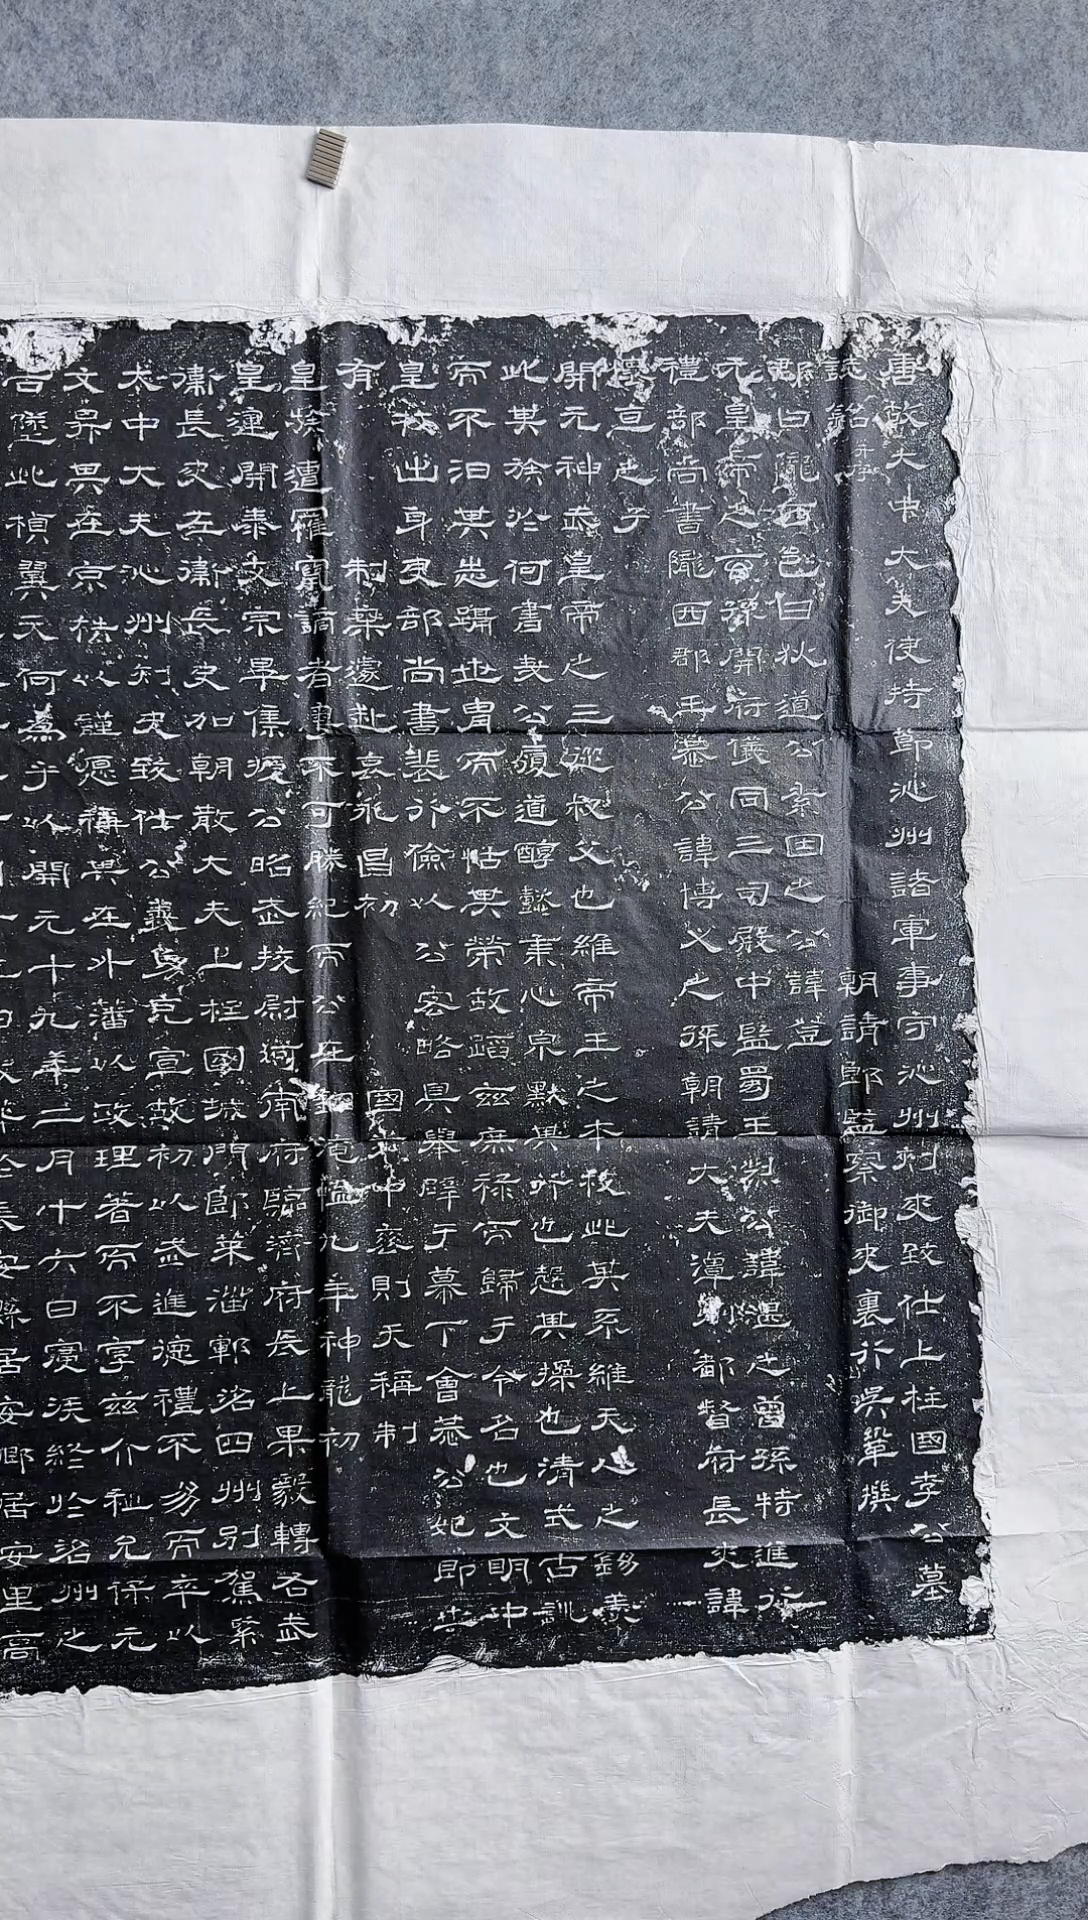 唐故大中大夫使持節沁州諸軍事守沁州刺史致仕上柱國李公墓
誌銘并序 朝請郎監察御史裏行吳鞏撰
郡曰隴西邑曰狄道公系因之公諱登
元皇帝之玄孫開府儀同三司殿中監蜀王贈公諱湛之曾孫特進行
禮部尚書隴西郡王恭公諱博乂之孫朝請大夫潭州都督府長史諱
亘之子
開元神武皇帝之三從叔父也維帝王之本枝此其系維天人之
此其族於何書矣公履道醇懿秉心泉默其行也愻其操也清式古訓
而不汩其志躡世胄而不怙其榮故蹈茲庶祿而歸于令名也文明中
皇枝出身吏部尚書裴行儉以公客略具舉辟于幕下會恭公妃即世
有 制奪遽赴哀永昌初 國 中 則天稱制
皇族遭罹竄謫者不可勝紀而公在 淹恤七年神龍初
皇運開泰文宗畢集授公昭武校尉河南府臨濟府左上果毅轉右武
衛長史左衛長史加朝散大夫上柱國城門郎萊淄鄆洛四州別駕累
太中大夫沁州刺史致仕公義勇克宣故初以武進德禮不昜而卒以
文昇其在京 以謹愿稱其在外藩以政理著而不享茲介祉允保元
吉墮此楨翼天何為乎以開元十九年二月十六日寢疾終於洛州之
長安縣居安鄉居安里高